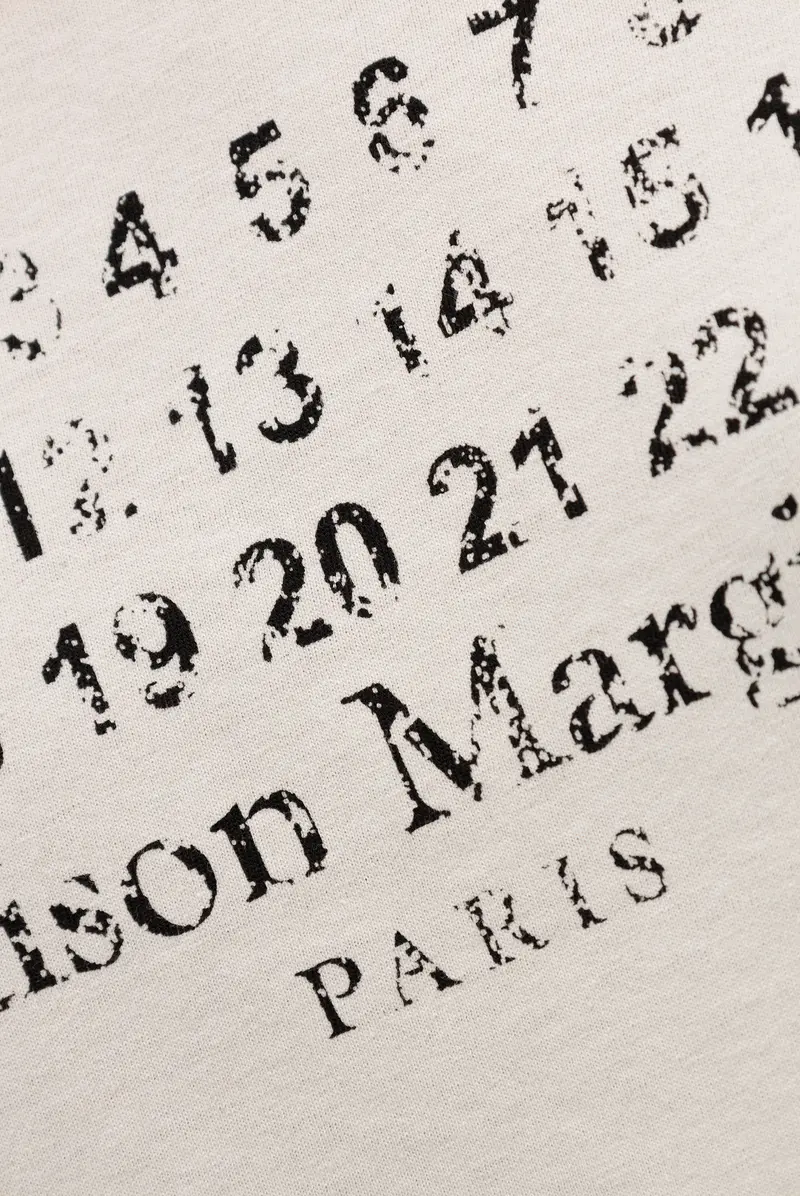 3 4 5 6 7 8
12 13 14 15 1
19 20 21 22
ison Margi
PARIS